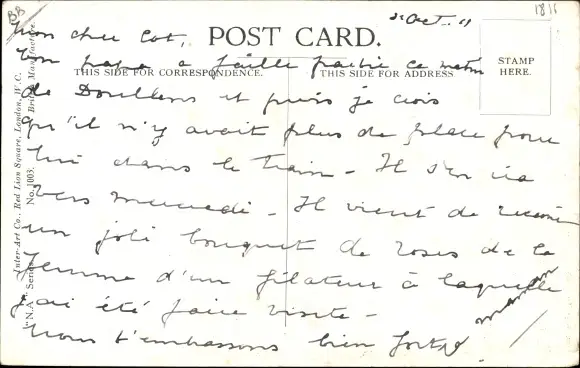 2 Oct. 11
1811
BB
POST CARD.
Mon cher Cot,
Ton papa a failli partir ce matin
THIS SIDE FOR CORRESPONDENCE.
THIS SIDE FOR ADDRESS
STAMP
HERE.
de Doullens et puis je crois
qu'il n'y avait plus de place pour
lui dans le train - Il s'en ira
vers mercredi - Il vient de recevoir
un joli bouquet de roses de la
femme d'un filateur à laquelle
j'ai été faire visite -
Nous t'embrassons bien fort
maman
Inter-Art Co., Red Lion Square, London, W.C.
"N.A." Series. No. 1003. British Manufacture.